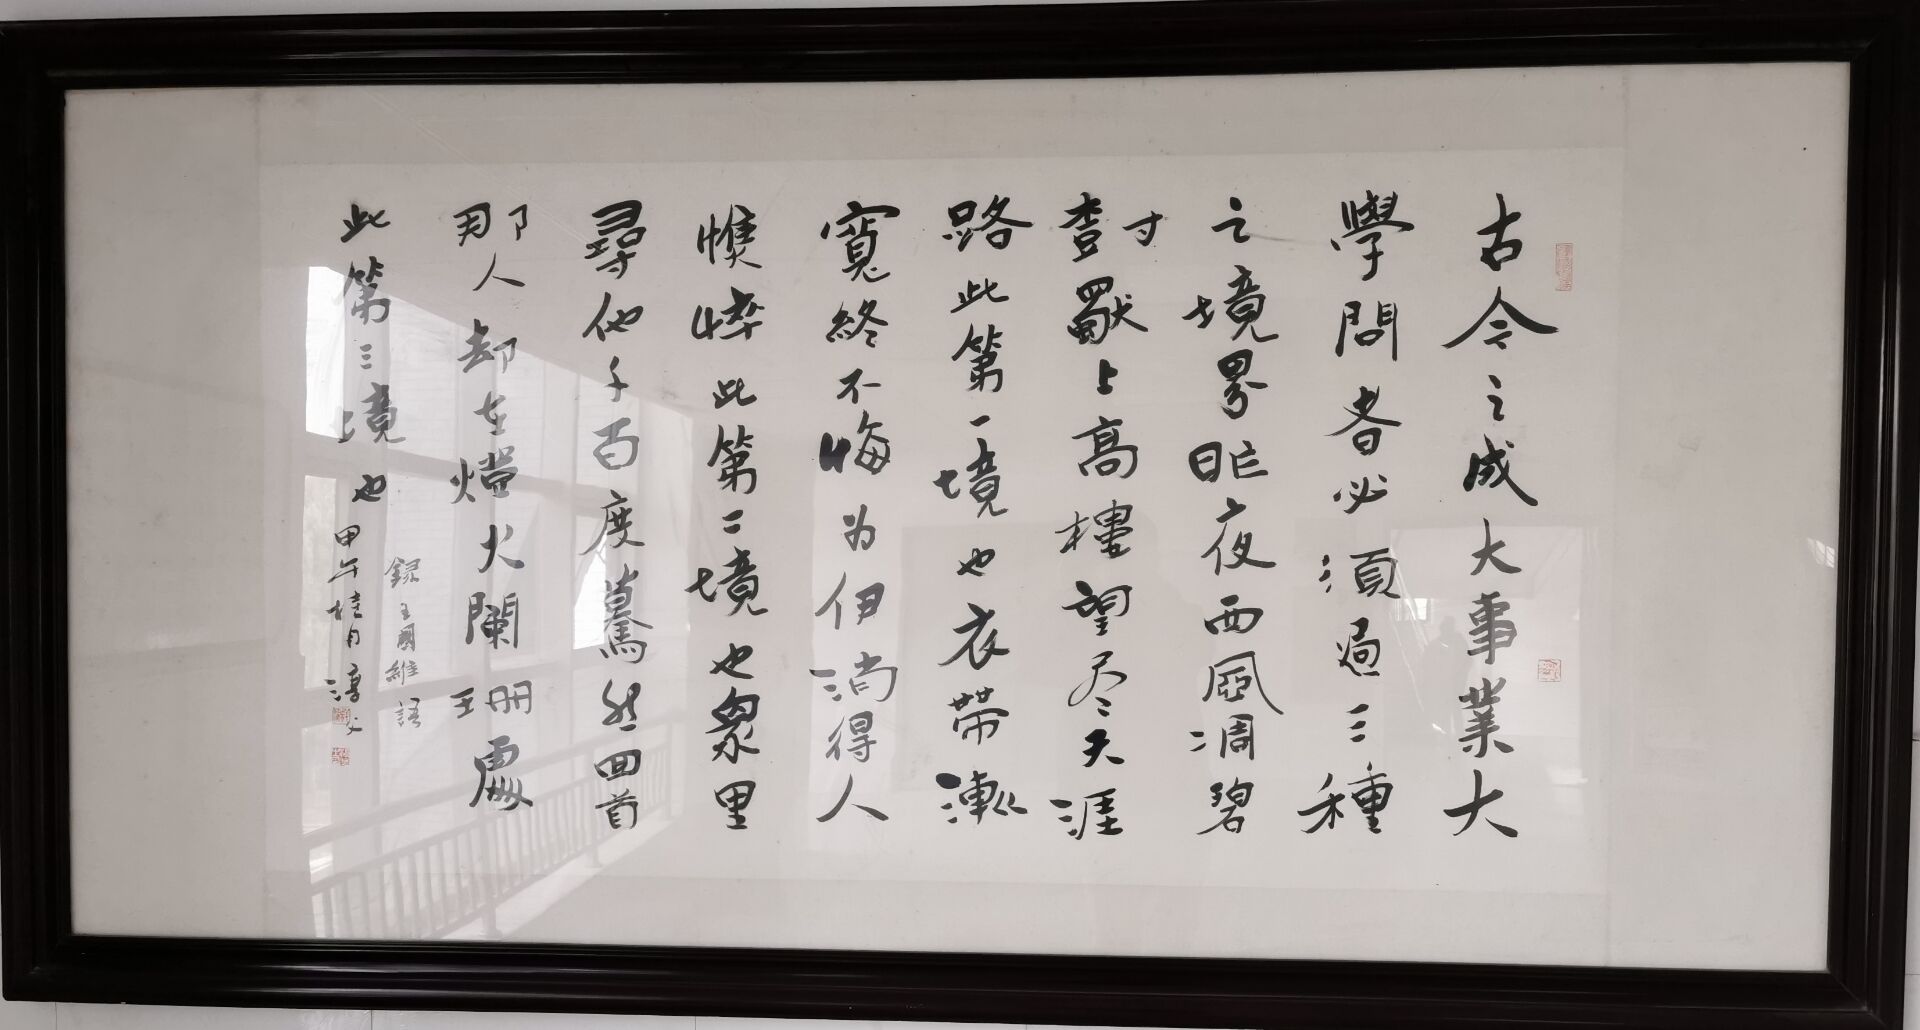 古今之成大事業大
學問者必須過三種
之境界昨夜西風凋碧
樹獨上高樓望尽天涯
路此第一境也衣帶漸
寬終不悔为伊消得人
憔悴此第二境也衆里
尋他千百度驀然回首
那人却在燈火闌珊處
此第三境也
錄王國維語
甲午桂月淳父